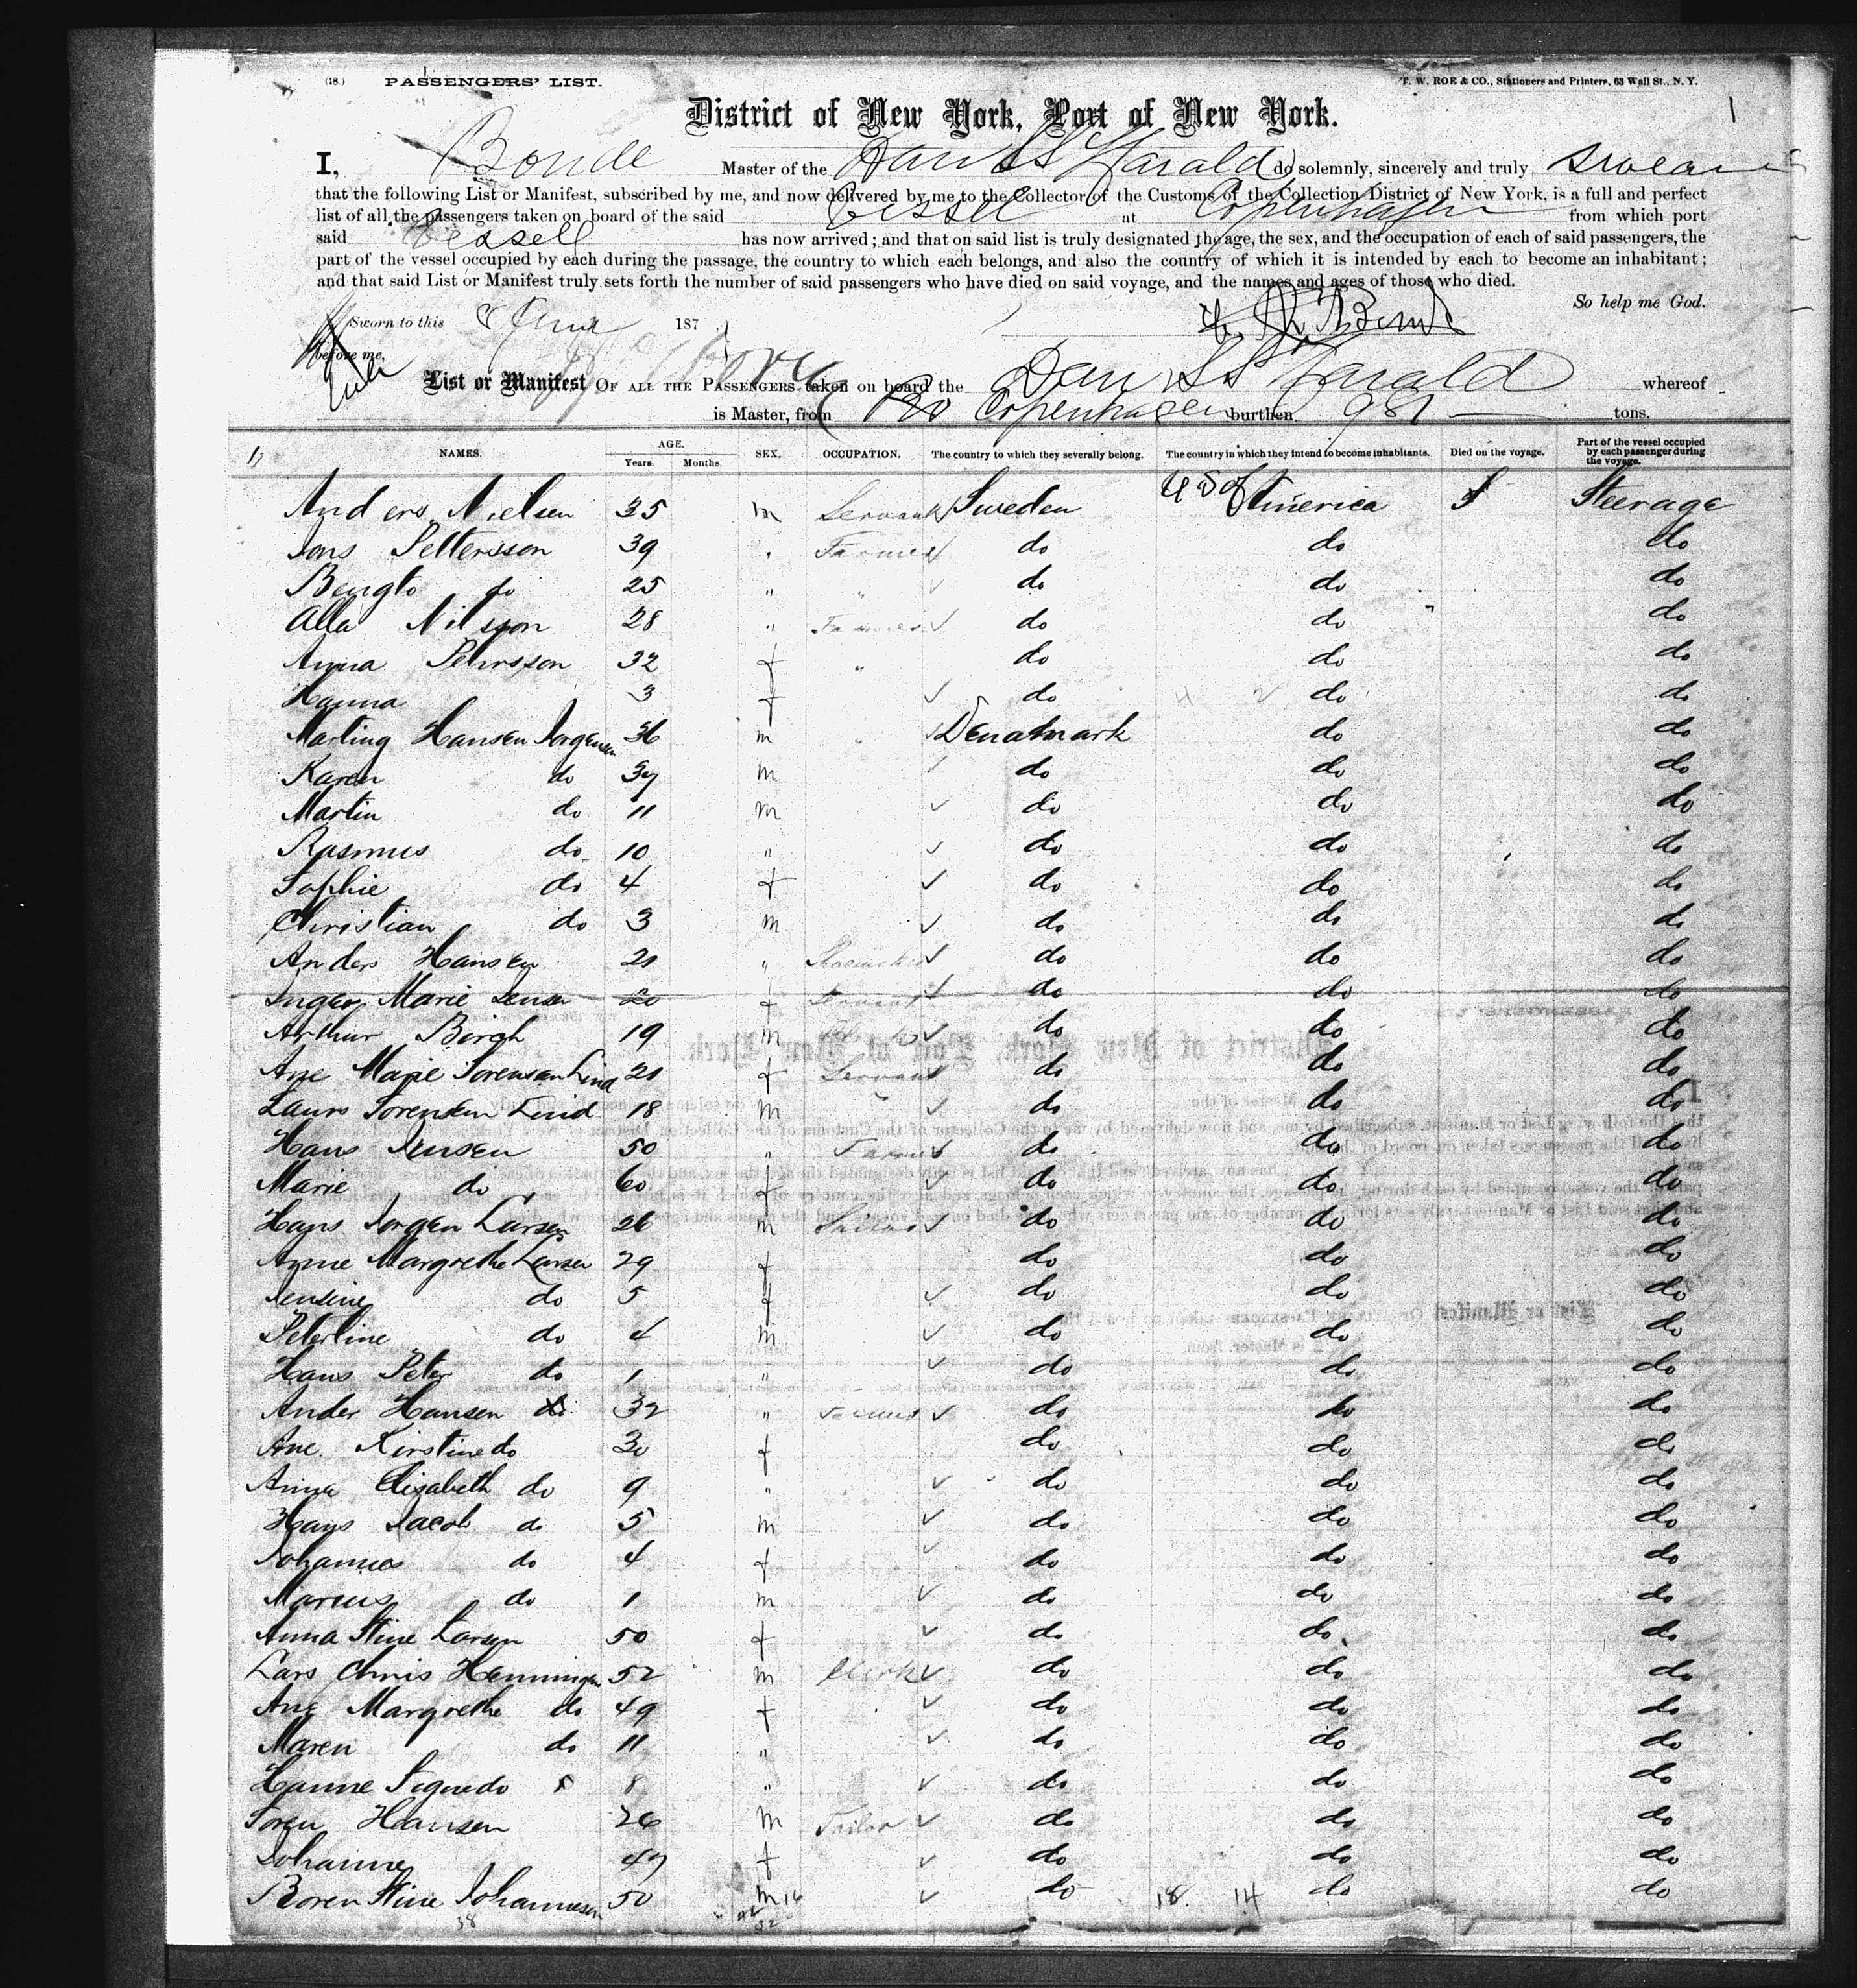 (18.) PASSENGERS' LIST. T. W. ROE & CO., Stationers and Printers, 63 Wall St., N. Y.
District of New York, Port of New York. 1
I, Bonde Master of the Dan SS Harald do solemnly, sincerely and truly swear
that the following List or Manifest, subscribed by me, and now delivered by me to the Collector of the Customs of the Collection District of New York, is a full and perfect
list of all the passengers taken on board of the said Vessel at Copenhagen from which port
said Vessell has now arrived; and that on said list is truly designated the age, the sex, and the occupation of each of said passengers, the
part of the vessel occupied by each during the passage, the country to which each belongs, and also the country of which it is intended by each to become an inhabitant;
and that said List or Manifest truly sets forth the number of said passengers who have died on said voyage, and the names and ages of those who died.
So help me God.
Sworn to this 8 June 187
before me,
List or Manifest OF ALL THE PASSENGERS taken on board the Dan SS Harald whereof
is Master, from Copenhagen burthen 981 tons.
NAMES. AGE. Years. Months. SEX. OCCUPATION. The country to which they severally belong. The country in which they intend to become inhabitants. Died on the voyage. Part of the vessel occupied by each passenger during the voyage.
Anders Nielsen 35 m Servant Sweden U S of America Steerage
Jons Pettersson 39 " Farmer do do do
Bengto do 25 " " do do do
Alla Nilsson 28 " Farmer do do do
Anna Pehrsson 32 f " do do do
Hanna 3 f do do do
Marting Hansen Jorgensen 36 m Denatmark do do
Karen do 37 m do do do
Martin do 11 m do do do
Rasmus do 10 " do do do
Sophie do 4 f do do do
Christian do 3 m do do do
Anders Hansen 21 " do do do
Inger Marie Jensen 20 f Servant do do do
Arthur Borgh 19 m do do do
Ane Marie Sorensen Lind 21 f Servant do do do
Laurs Sorensen Lind 18 m " do do do
Hans Jensen 50 " Farmer do do do
Marie do 60 f do do do
Hans Jorgen Larsen 26 m do do do
Anne Margrethe Larsen 29 f do do do
Jensine do 5 f do do do
Peterline do 4 m do do do
Hans Peter do 1 " do do do
Ander Hansen do 32 " Farmer do do do
Ane Kirstine do 30 f do do do
Anna Elisabeth do 9 " do do do
Hans Jacob do 5 m do do do
Johannes do 4 f do do do
Marius do 1 m do do do
Anna Stine Larsen 50 f do do do
Lars Chris Henningsen 52 m Clerk do do do
Ane Margrethe do 49 f do do do
Maren do 11 " do do do
Hanne Signe do 8 " do do do
Soren Hansen 26 m Tailor do do do
Johanne 47 f do do do
Boren Stine Johannesen 50 m 16 do 18 14 do do
38